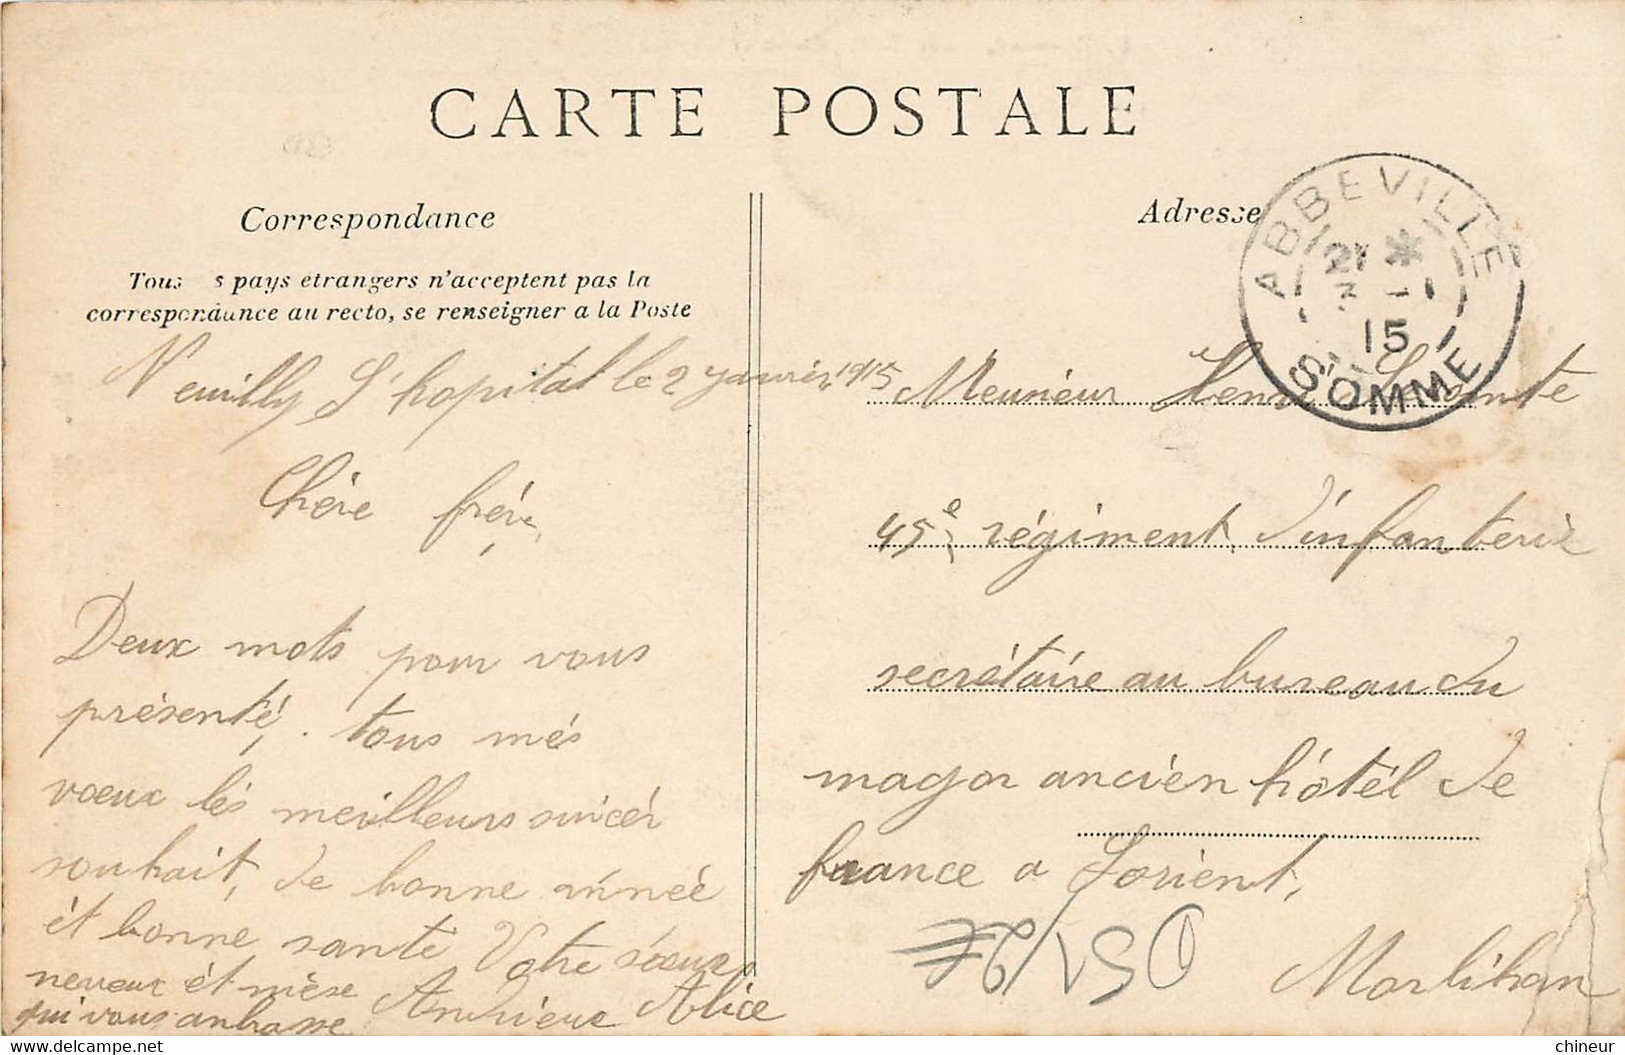 CARTE POSTALE
Correspondance
Tous s pays etrangers n'acceptent pas la
correspondance au recto, se renseigner a la Poste
Neuilly L'hopital le 2 janvier 1915
Chère frére
Deux mots pour vous
présenté, tous més
voeux lés meilleurs sincér
souhait, de bonne année
ét bonne santé Votre séœur
neveux ét nièse Andrieux Alice
qui vous anbrasse
Adresse
ABBEVILLE
21 *
3 - 1
15
SOMME
Meunieur Henri
45e régiment d'infanterie
secrétaire au bureau du
major ancien hôtél de
france a Lorient,
Morbihan
chineur